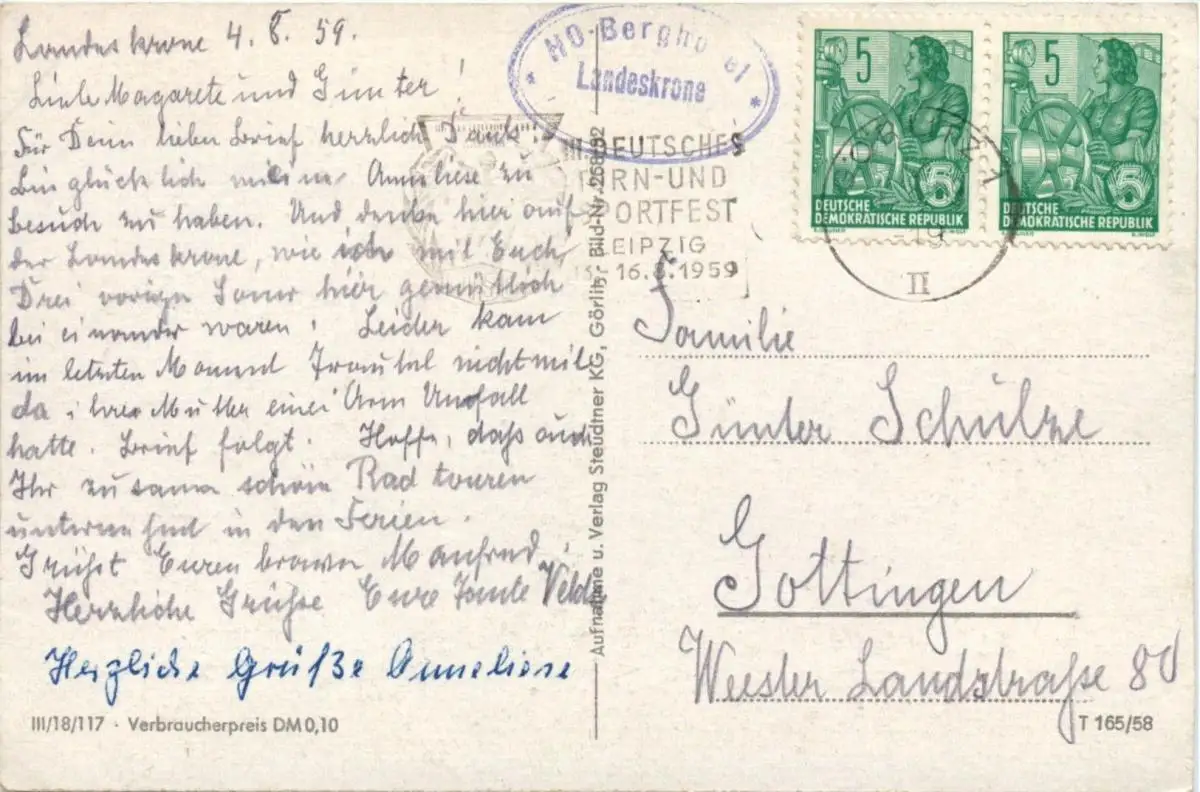 Landeskrone 4. 8. 59.
Liebe Magarete und Günter!
Für Dein lieben Brief herzlich Dank.
Bin glücklich meine Anneliese zu
besuch zu haben. Und denke hier auf
der Landeskrone, wie ich mit Euch
Drei vorigen Somer hier gemütlich
bei einander waren. Leider kam
im letzten Moment Trautel nicht mit
da ihrer Mutter einen Arm Unfall
hatte. Brief folgt. Hoffe, daß auch
Ihr zusamm schöne Rad touren
unternehmt in den Ferien.
Grüßt Euren braven Manfred.
Herzliche Grüße Eure Tante
Herzliche Grüße Anneliese
III/18/117 · Verbraucherpreis DM 0,10
Aufnahme u. Verlag Steudtner KG, Görlitz, Bild-Nr.
HO-Bergho el
* Landeskrone *
III. DEUTSCHES
TURN-UND
SPORTFEST
LEIPZIG
16.8.1959
5
DEUTSCHE
DEMOKRATISCHE REPUBLIK
5
5
DEUTSCHE
DEMOKRATISCHE REPUBLIK
-19
II
Familie
Günter Schülze
Gottingen
Landstraße 80
T 165/58